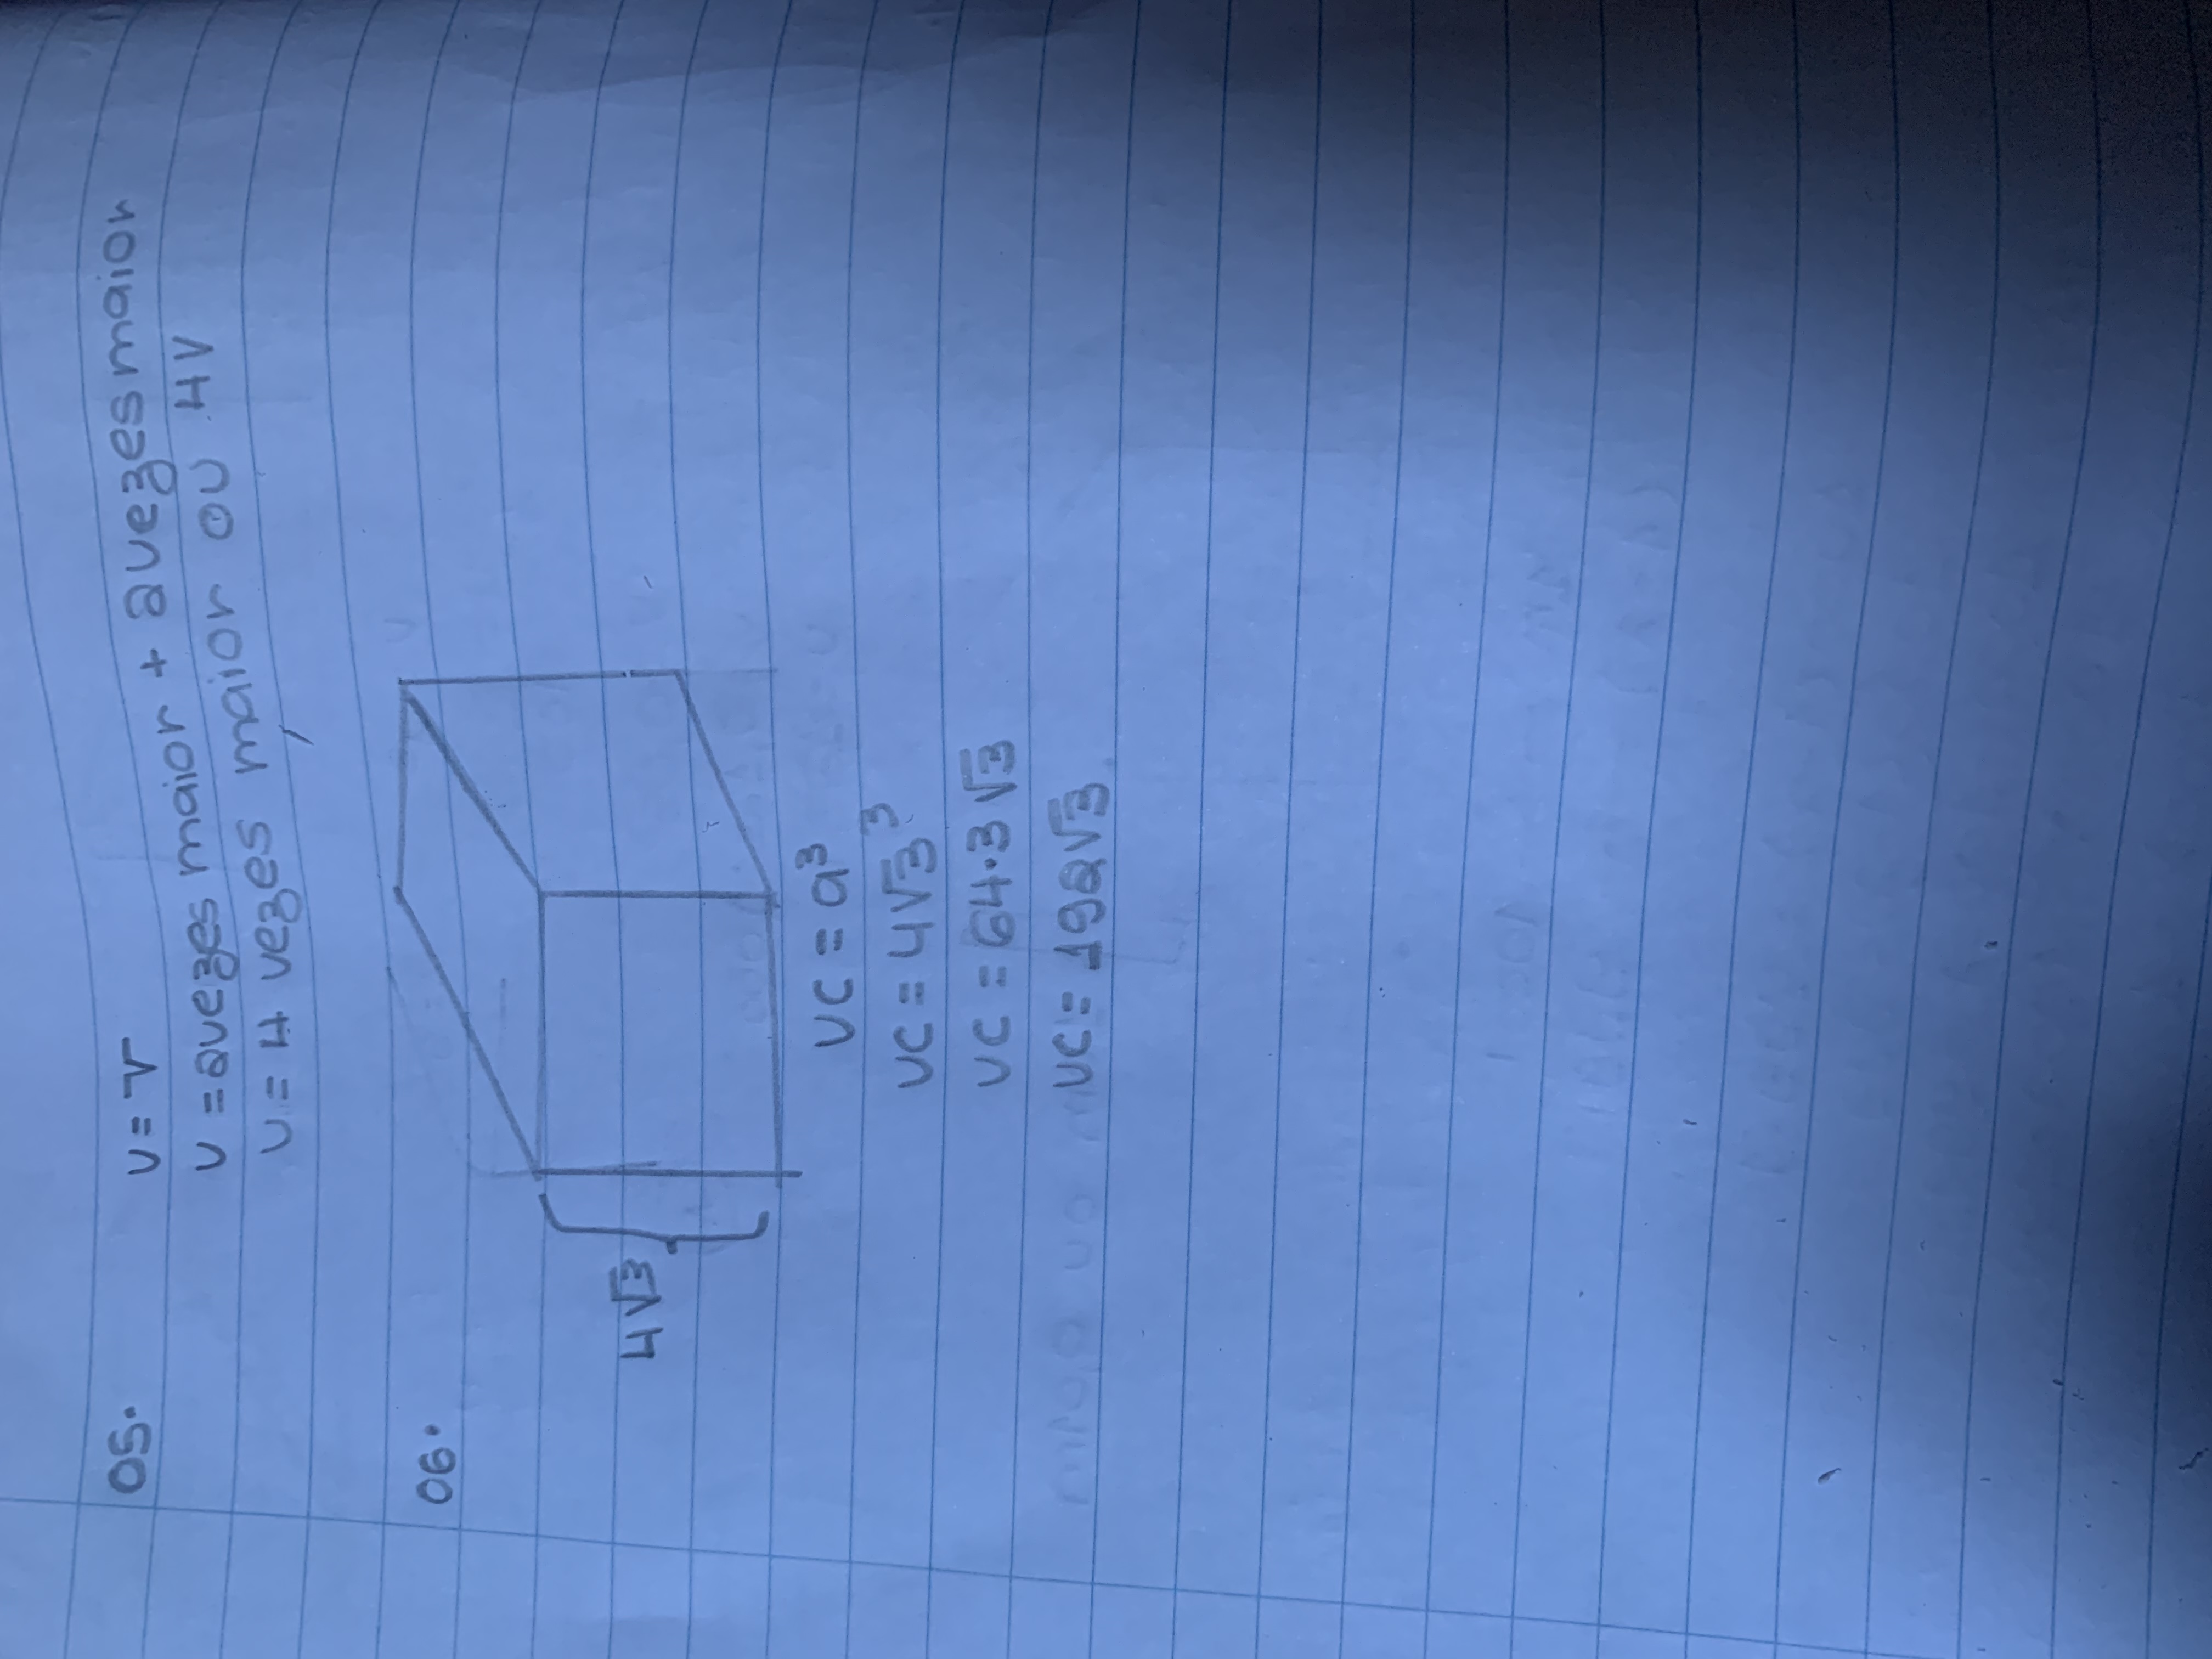 05. V = V
V = 2 vezes maior + 2 vezes maior
V = 4 vezes maior ou 4V
06.
4√3
VC = a³
VC = 4√3³
VC = 64·3√3
VC = 192√3